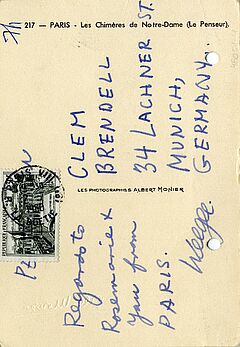 217 — PARIS - Les Chimères de Notre-Dame (Le Penseur).
CLEM
BRENDELL
34 LACHNER ST.
MUNICH,
GERMANY.
LES PHOTOGRAPHIES ALBERT MONIER
Regards to
Rosemarie &
you from
PARIS.